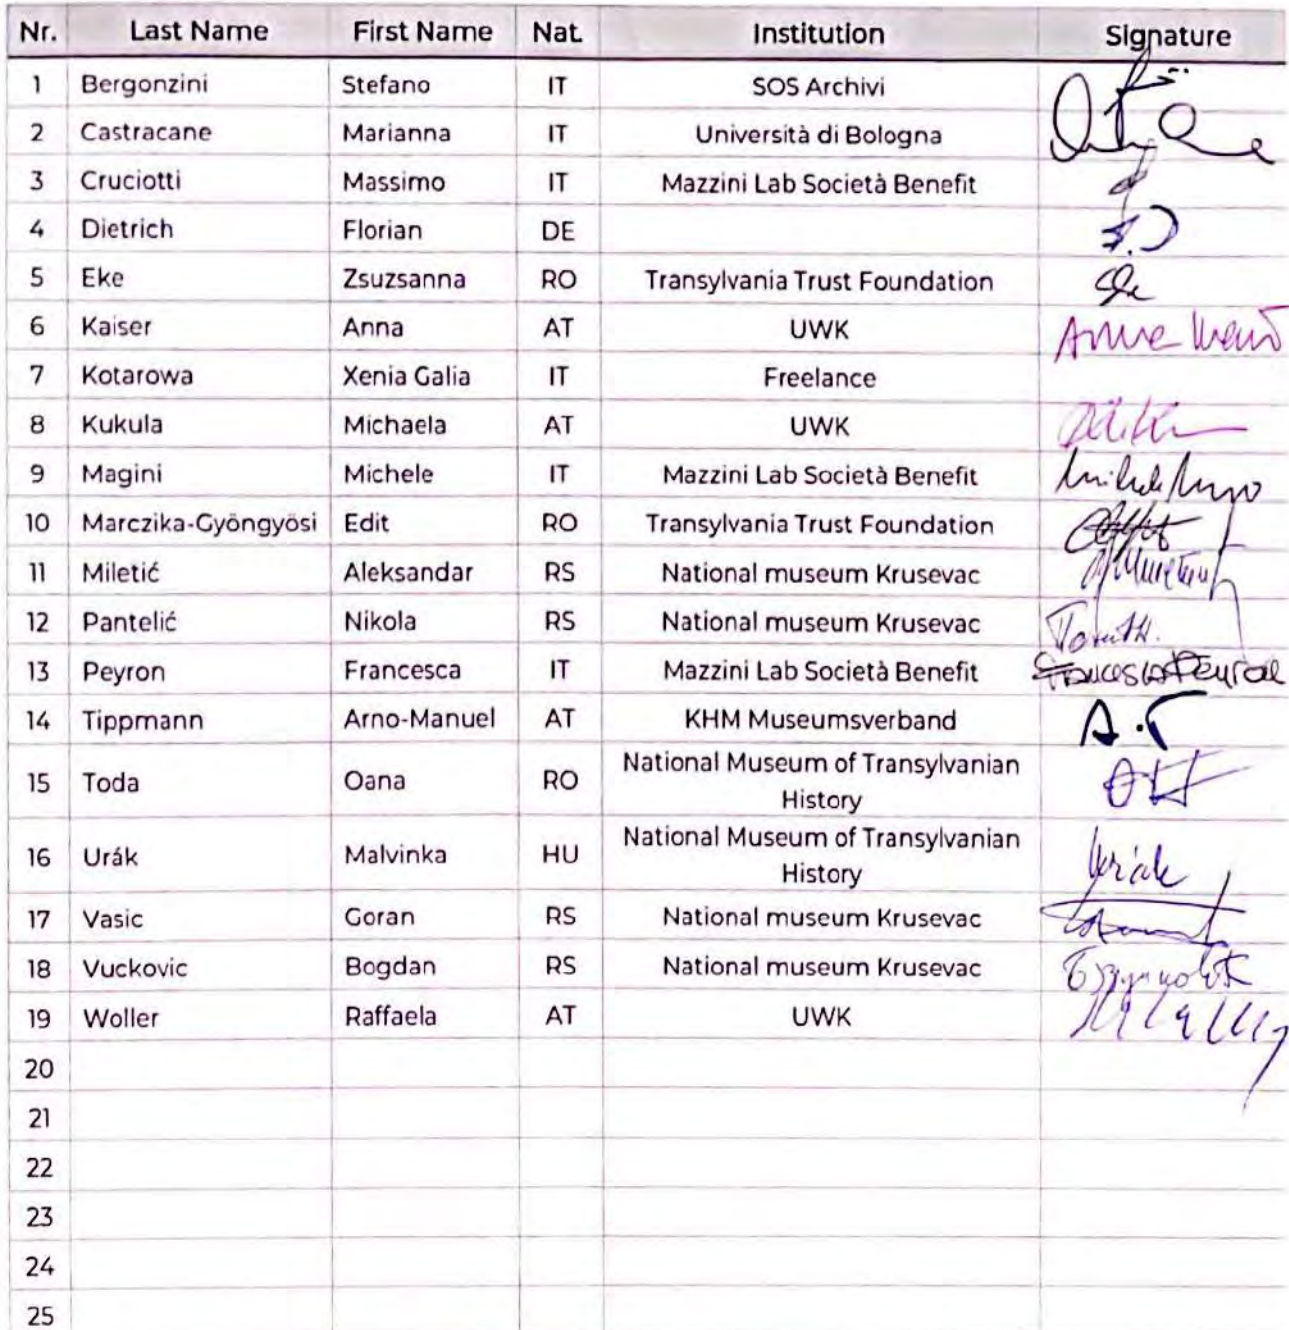 Nr. Last Name First Name Nat. Institution Signature
1 Bergonzini Stefano IT SOS Archivi
2 Castracane Marianna IT Università di Bologna
3 Cruciotti Massimo IT Mazzini Lab Società Benefit
4 Dietrich Florian DE F.D
5 Eke Zsuzsanna RO Transylvania Trust Foundation
6 Kaiser Anna AT UWK Anna
7 Kotarowa Xenia Galia IT Freelance
8 Kukula Michaela AT UWK
9 Magini Michele IT Mazzini Lab Società Benefit
10 Marczika-Gyöngyösi Edit RO Transylvania Trust Foundation
11 Miletić Aleksandar RS National museum Krusevac
12 Pantelić Nikola RS National museum Krusevac
13 Peyron Francesca IT Mazzini Lab Società Benefit Francesca Peyron
14 Tippmann Arno-Manuel AT KHM Museumsverband A.T
15 Toda Oana RO National Museum of Transylvanian
History
16 Urák Malvinka HU National Museum of Transylvanian
History Urák
17 Vasic Goran RS National museum Krusevac
18 Vuckovic Bogdan RS National museum Krusevac
19 Woller Raffaela AT UWK
20
21
22
23
24
25